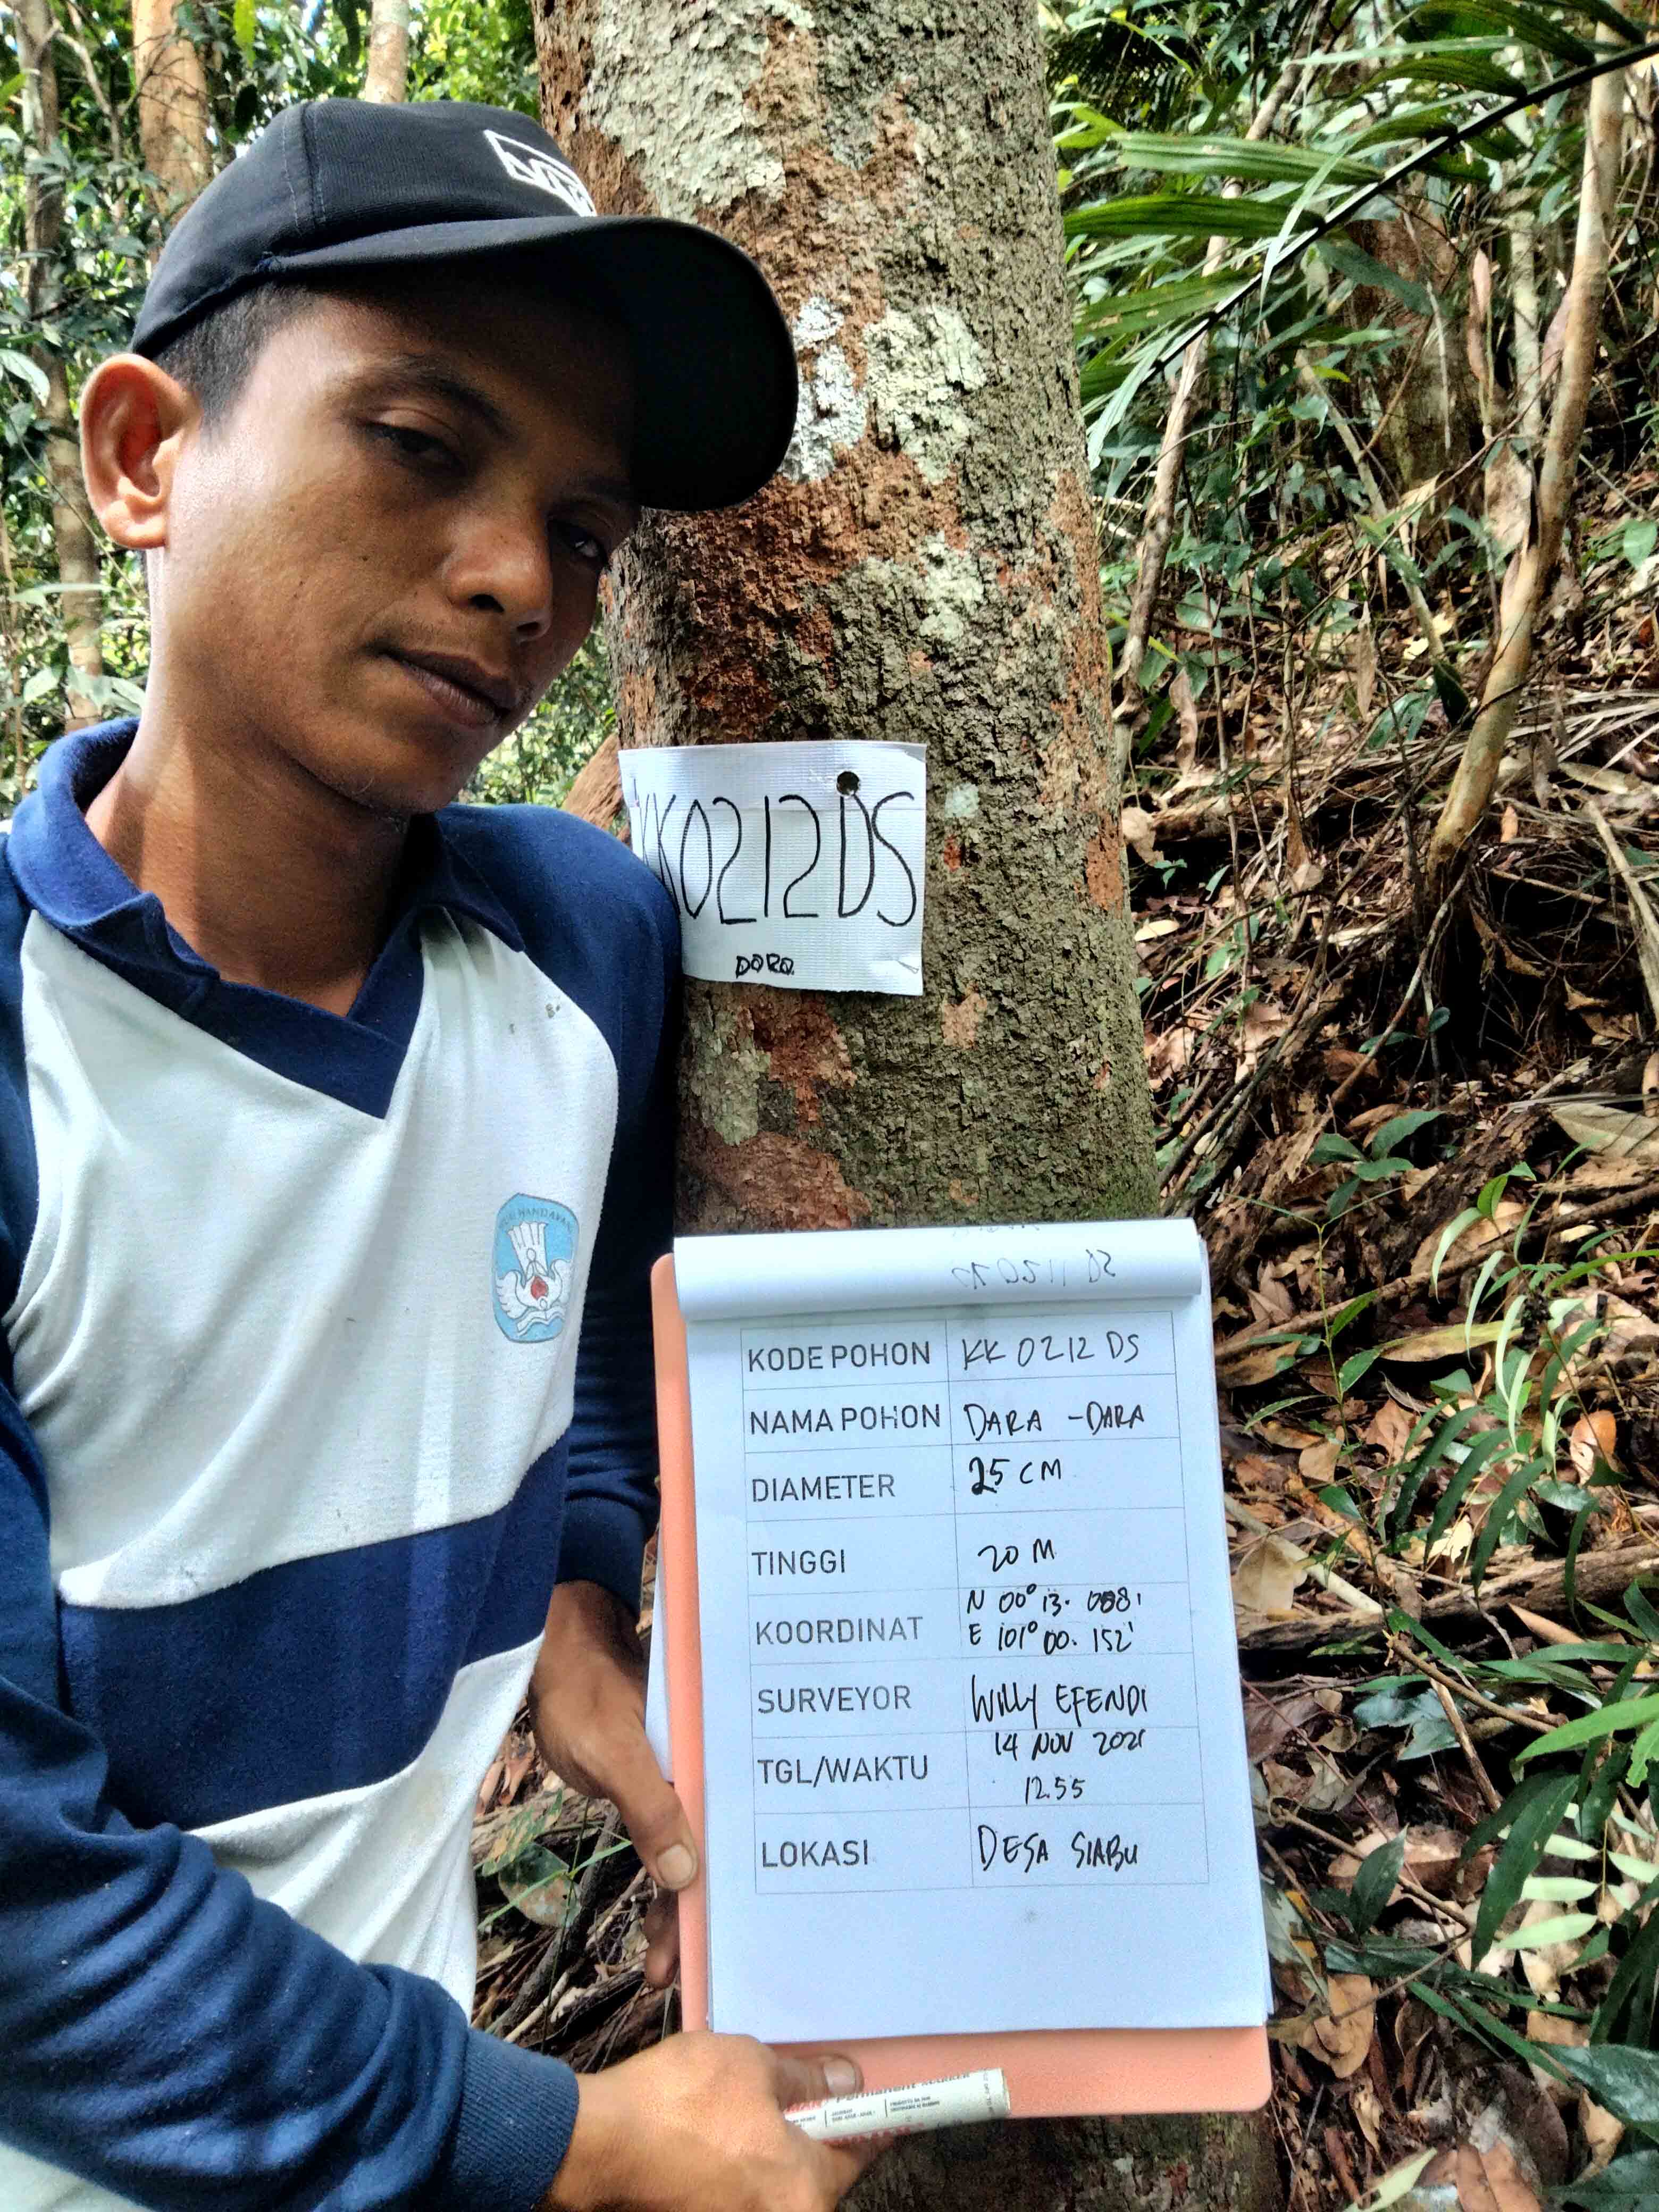 KK0212DS
DORO
KODE POHON KK 0212 DS
NAMA POHON DARA -DARA
DIAMETER 25 CM
TINGGI 20 M
KOORDINAT N 00° 13. 088'
E 101° 00. 152'
SURVEYOR WILLY EFENDI
TGL/WAKTU 14 NOV 2021
12.55
LOKASI DESA SIABU
HANDAYANI
Permanent